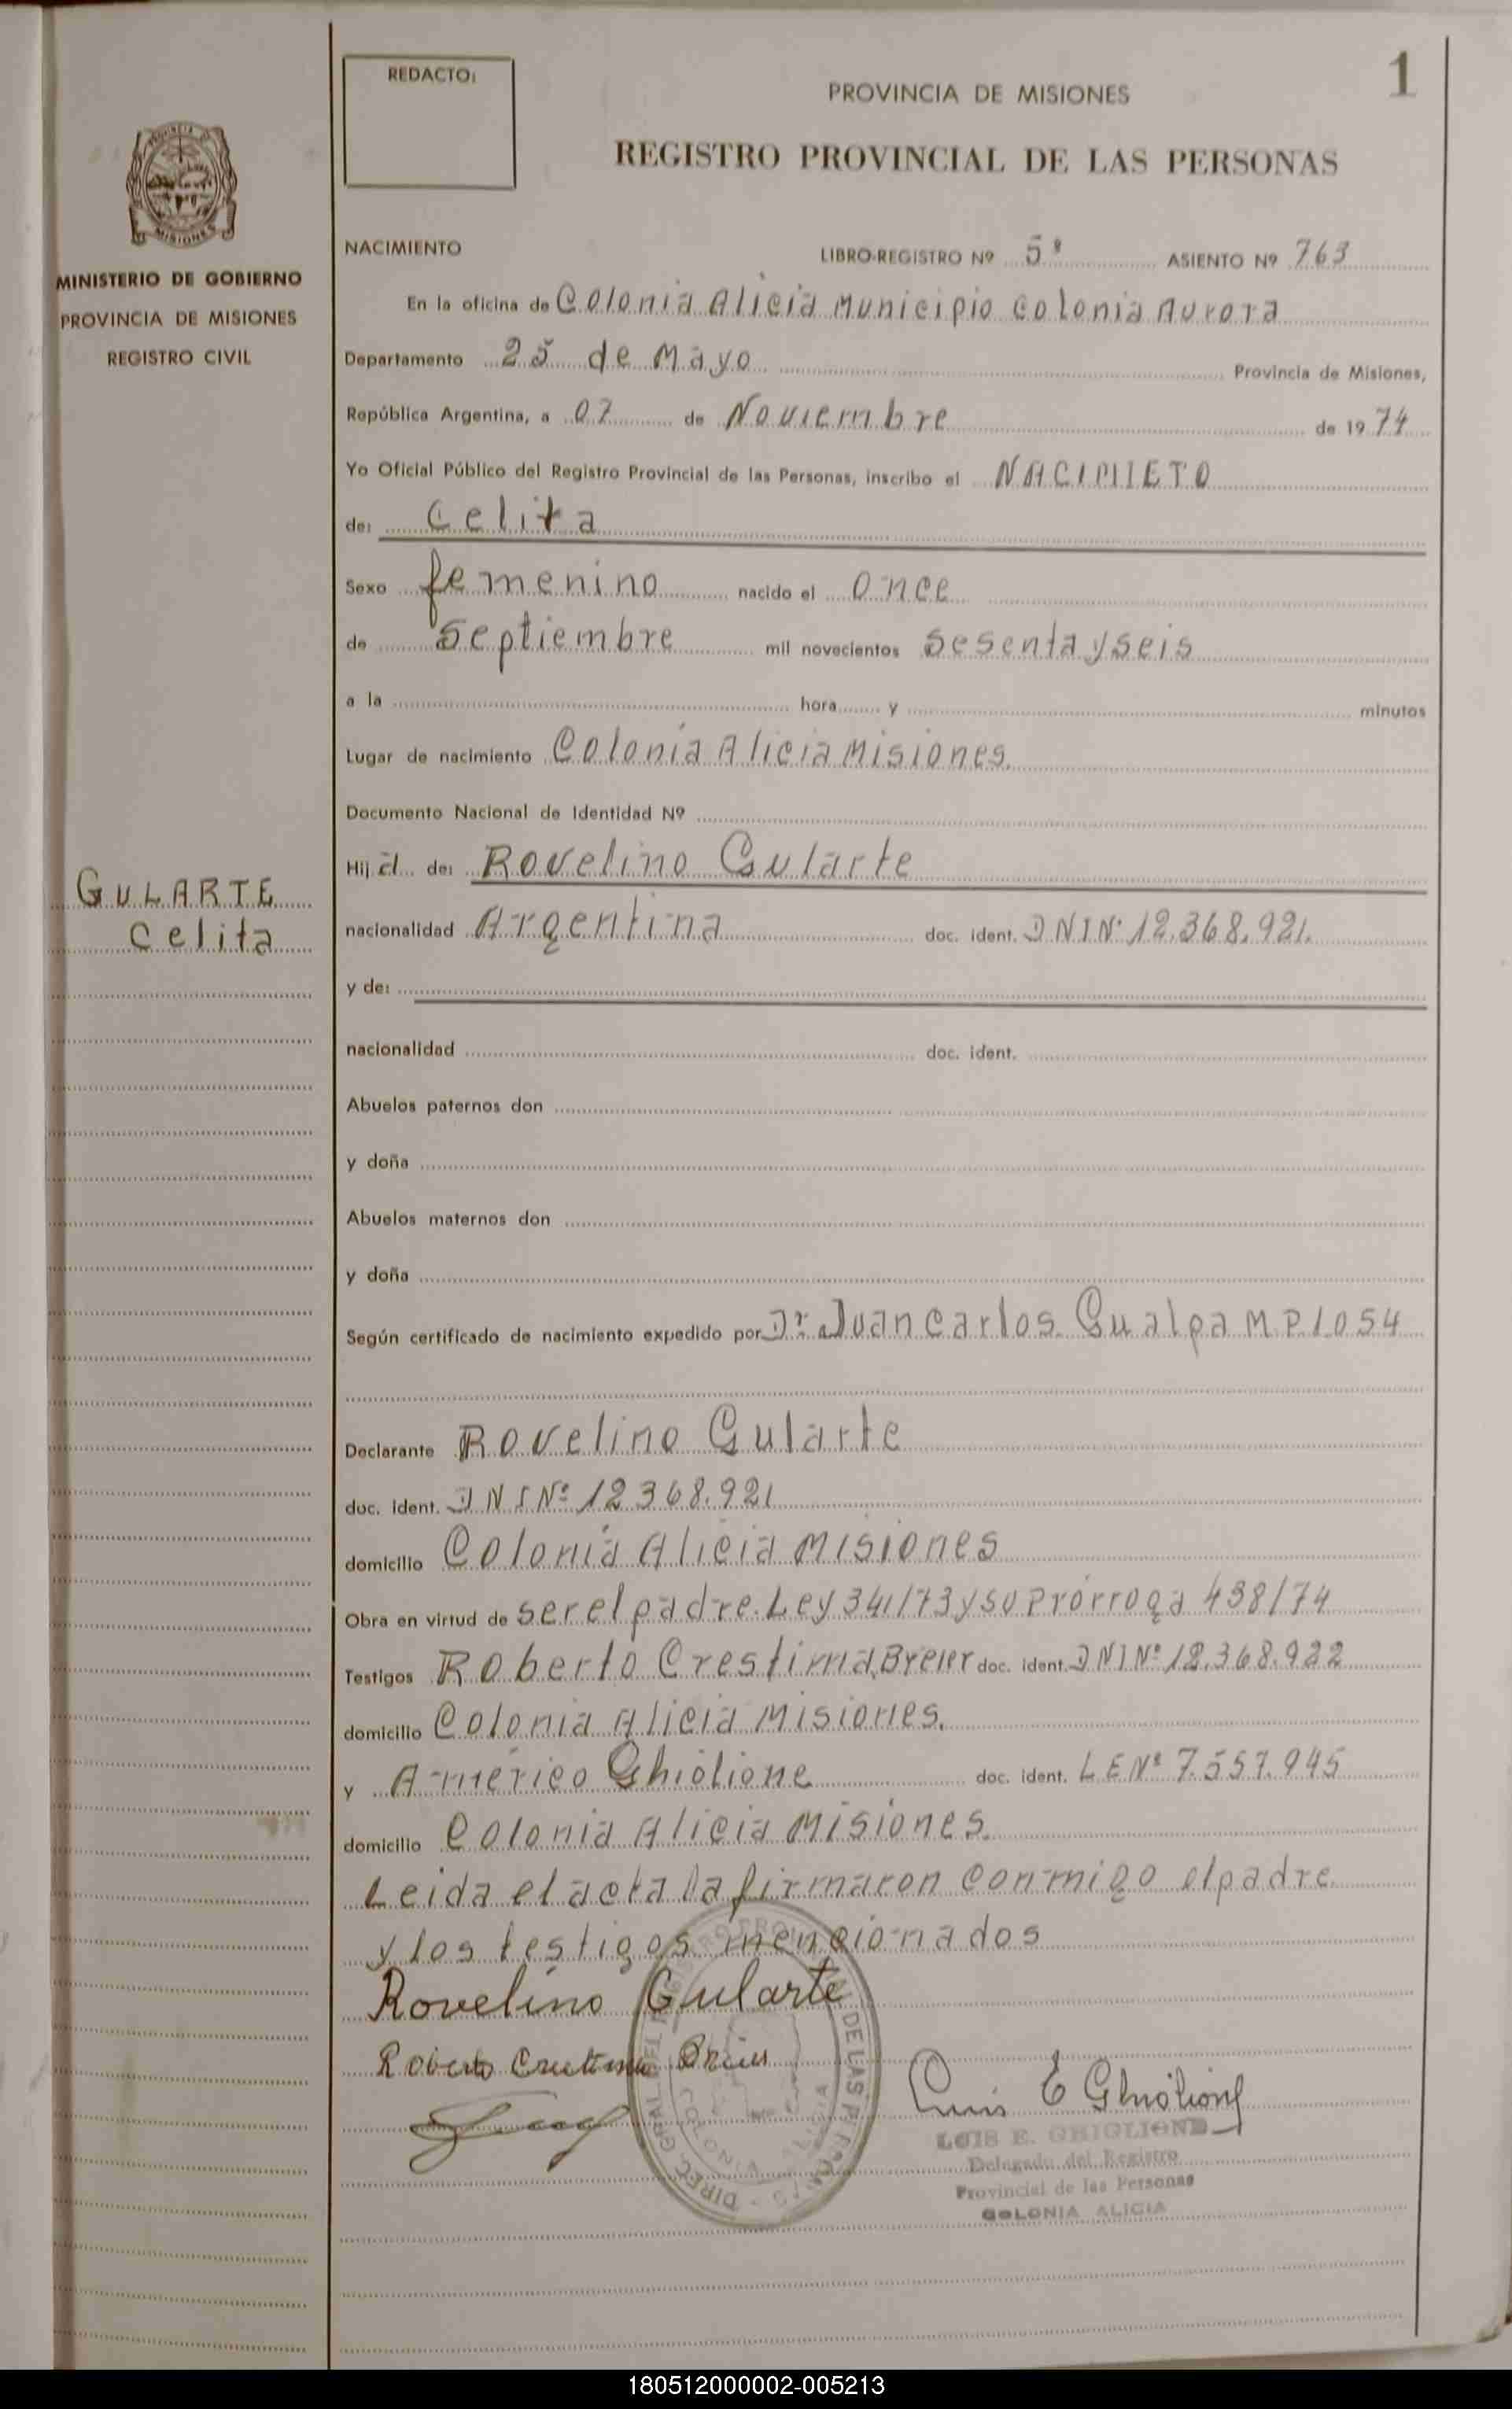 REDACTO:
1
PROVINCIA DE MISIONES
REGISTRO PROVINCIAL DE LAS PERSONAS
MISIONES
MINISTERIO DE GOBIERNO
PROVINCIA DE MISIONES
REGISTRO CIVIL
NACIMIENTO LIBRO-REGISTRO Nº 5º ASIENTO Nº 763
En la oficina de Colonia Alicia Municipio Colonia Aurora
Departamento 25 de Mayo Provincia de Misiones,
República Argentina, a 07 de Noviembre de 1974
Yo Oficial Público del Registro Provincial de las Personas, inscribo el NACIMIETO
de: Celita
Sexo femenino nacido el once
de Septiembre mil novecientos sesenta y seis
a la hora y minutos
Lugar de nacimiento Colonia Alicia Misiones.
Documento Nacional de Identidad Nº
Hija de: Rovelino Gularte
GULARTE
Celita
nacionalidad Argentina doc. ident. DNI Nº 12.368.921.
y de:
nacionalidad doc. ident.
Abuelos paternos don
y doña
Abuelos maternos don
y doña
Según certificado de nacimiento expedido por Dr. Juan Carlos Gualpa M.P.1054
Declarante Rovelino Gularte
doc. ident. DNI Nº 12368.921
domicilio Colonia Alicia Misiones
Obra en virtud de ser el padre. Ley 341/73 y su Prórroga 438/74
Testigos Roberto Crestima Breier doc. ident. DNI Nº 12.368.922
domicilio Colonia Alicia Misiones.
y Américo Ghiolione doc. ident. LE Nº 7.557.945
domicilio Colonia Alicia Misiones.
Leida el acta la firmaron conmigo el padre
y los testigos mencionados
Rovelino Gularte
Roberto
Luis E Ghiolione
LUIS E. GHIGLIONE
Delegado del Registro
Provincial de las Personas
COLONIA ALICIA
180512000002-005213